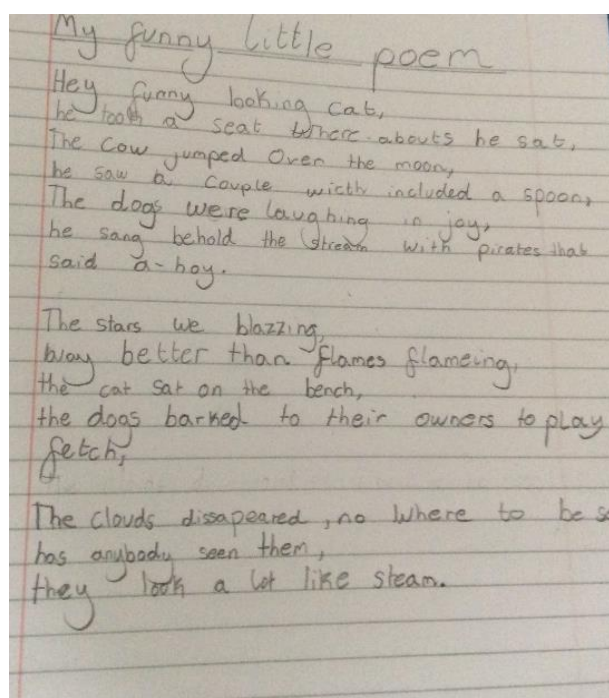 My funny little poem
Hey funny looking cat,
he took a seat where abouts he sat,
The cow jumped over the moon,
he saw a couple wicth included a spoon,
The dogs were laughing in joy,
he sang behold the stream with pirates that
said a-hoy.
The stars we blazzing,
way better than flames flameing,
the cat sat on the bench,
the dogs barked to their owners to play
fetch,
The clouds dissapeared, no where to be
has anybody seen them,
they look a lot like steam.